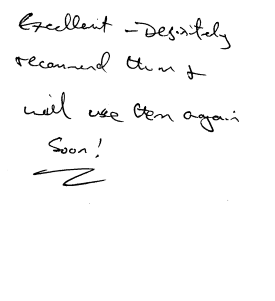 Excellent - Definitely
recommend them &
will use them again
Soon!